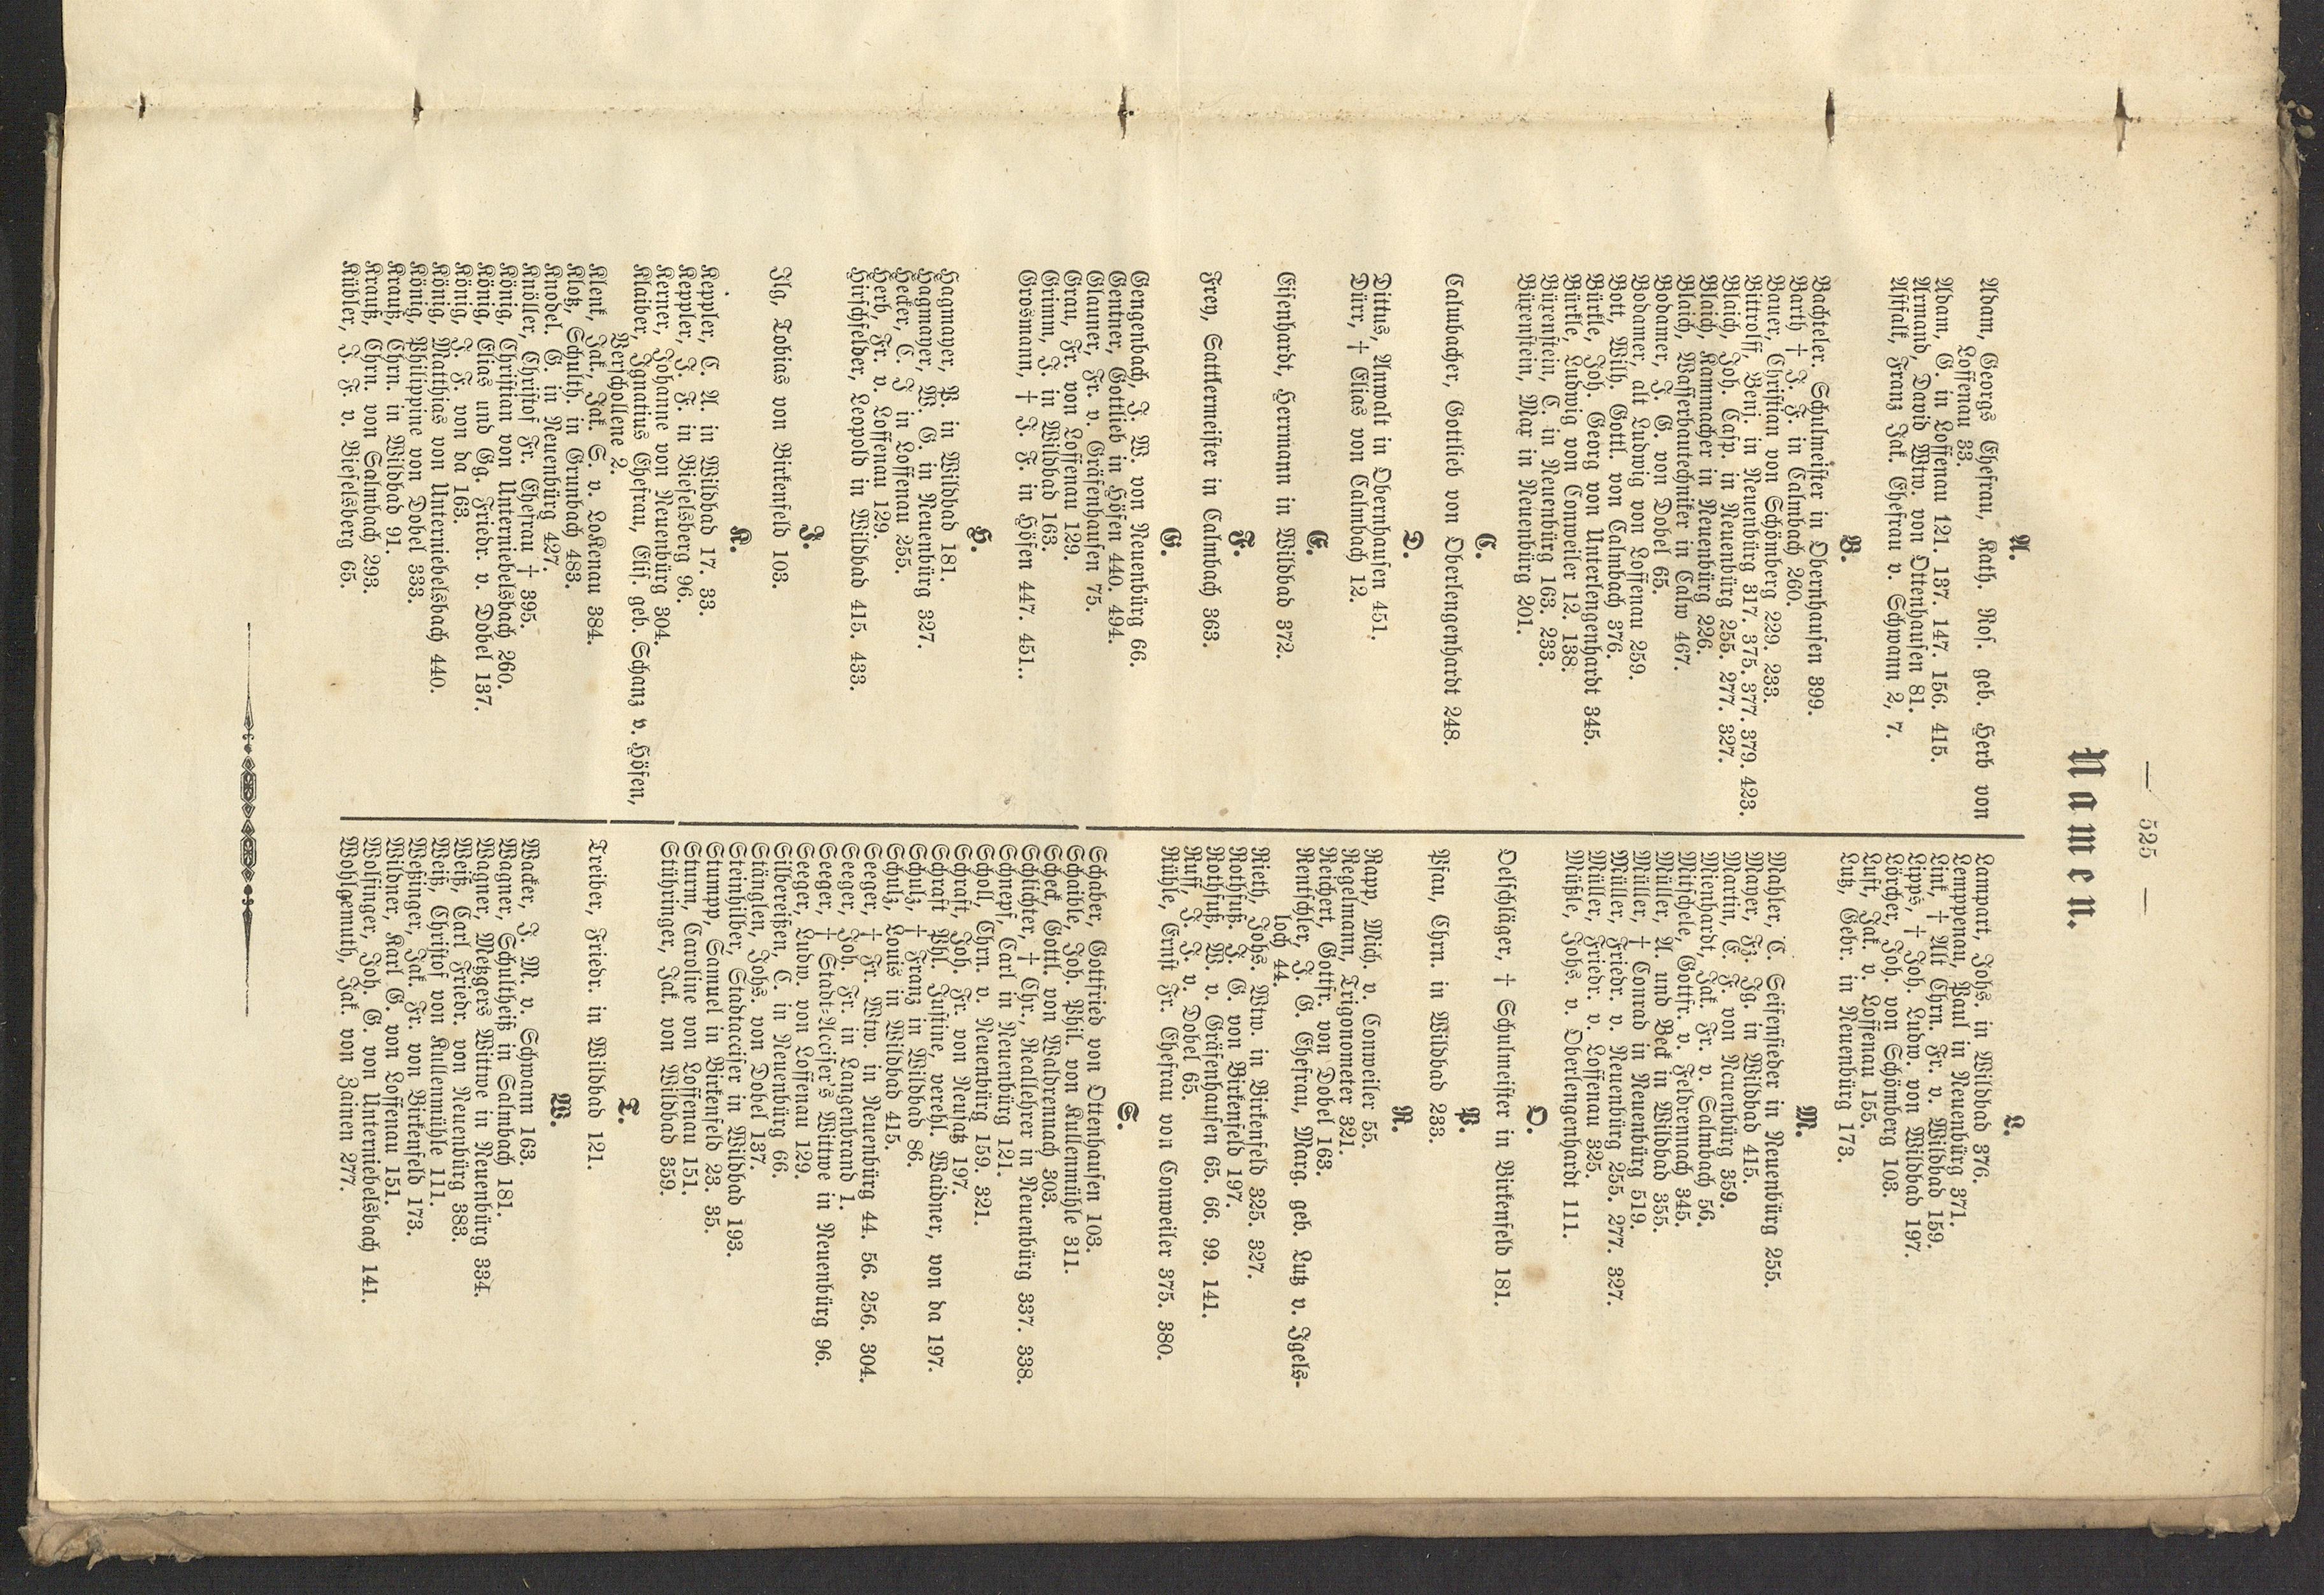 — 525 —
Namen.
A.
Adam, Georgs Ehefrau, Kath. Ros. geb. Herb von
Loffenau 33.
Adam, G. in Loffenau 121. 137. 147. 156. 415.
Armand, David Wtw. von Ottenhausen 81.
Astfalk, Franz Jak. Ehefrau v. Schwann 2, 7.
B.
Bachteler. Schulmeister in Obernhausen 399.
Barth † J. F. in Calmbach 260.
Bauer, Christian von Schömberg 229. 233.
Bitrolff, Benj. in Neuenbürg 317. 375. 377. 379. 423.
Blaich, Joh. Casp. in Neuenbürg 255. 277. 327.
Blaich, Kammacher in Neuenbürg 226.
Blaich, Wasserbautechniker in Calw 467.
Bodamer, J. G. von Dobel 65.
Bodamer, alt Ludwig von Loffenau 259.
Bott, Wilh. Gottl. von Calmbach 376.
Bürkle, Joh. Georg von Unterlengenhardt 345.
Bürkle, Ludwig von Conweiler 12. 138.
Bürenstein, C. in Neuenbürg 163. 233.
Bürenstein, Max in Neuenbürg 201.
C.
Calubacher, Gottlieb von Oberlengenhardt 248.
D.
Dittus, Anwalt in Obernhausen 451.
Dürr, † Elias von Calmbach 12.
E.
Eisenhardt, Herrmann in Wildbad 372.
F.
Frey, Sattlermeister in Calmbach 363.
G.
Gengenbach, J. W. von Neuenbürg 66.
Gentner, Gottlieb in Höfen 440. 494.
Glauner, Fr. v. Gräfenhausen 75.
Grau, Fr. von Loffenau 129.
Grimm, J. in Wildbad 163.
Grosmann, † J. F. in Höfen 447. 451..
H.
Hagmayer, P. in Wildbad 181.
Hagmayer, W. G. in Neuenbürg 327.
Hecker, C. J in Loffenau 255.
Herb, Fr. v. Loffenau 129.
Hirschfelder, Leopold in Wildbad 415. 433.
J.
Ilg, Tobias von Birkenfeld 103.
K.
Keppler, C. A. in Wildbad 17. 33.
Keppler, J. F. in Bieselsberg 96.
Kerner, Johanne von Neuenbürg 304.
Klaiber, Ignatius Ehefrau, Elis. geb. Schanz v. Höfen,
Verschollene 2.
Klenk, Jak., Jak. S. v. Loffenau 384.
Klotz, Schulth. in Grunbach 483.
Knodel. G. in Neuenbürg 427.
Knöller, Christof Fr. Ehefrau † 395.
König, Christian von Unterniebelsbach 260.
König, Elias und Gg. Friedr. v. Dobel 137.
König, J. F. von da 163.
König, Matthias von Unterniebelsbach 440.
König, Philippine von Dobel 333.
Krauß, Chrn. in Wildbad 91.
Krauß, Chrn. von Salmbach 293.
Kübler, J. F. v. Bieselsberg 65.
L.
Lampart, Johs. in Wildbad 376.
Lemppenau, Paul in Neuenbürg 371.
Link, † Alt Chrn. Fr. v. Wildbad 159.
Lipps, † Joh. Ludw. von Wildbad 197.
Lörcher, Joh. von Schömberg 103.
Luft, Jak. v. Loffenau 155.
Lutz, Gebr. in Neuenbürg 173.
M.
Mahler, C. Seifensieder in Neuenbürg 255.
Mayer, Fz. Ig. in Wildbad 415.
Martin, E. F. von Neuenbürg 359.
Mienhardt, Jak. Fr. v. Salmbach 56.
Mitschele, Gottfr. v. Feldrennach 345.
Müller, A. und Beck in Wildbad 355.
Müller, † Conrad in Neuenbürg 519.
Müller, Friedr. v. Neuenbürg 255. 277. 327.
Müller, Friedr. v. Loffenau 325.
Müßle, Johs. v. Oberlengenhardt 111.
O.
Oelschläger, † Schulmeister in Birkenfeld 181.
P.
Pfau, Chrn. in Wildbad 233.
R.
Rapp, Mich. v. Conweiler 55.
Regelmann, Trigonometer 321.
Reichert, Gottfr. von Dobel 163.
Rentschler, J. G. Ehefrau, Marg. geb. Lutz v. Igels-
loch 44.
Rieth, Johs. Wtw. in Birkenfeld 325. 327.
Rothfuß. J. G. von Birkenfeld 197.
Rothfuß, W. v. Gräfenhausen 65. 66. 99. 141.
Ruff, J. J. v. Dobel 65.
Rühle, Ernst Fr. Ehefrau von Conweiler 375. 380.
S.
Schaber, Gottfried von Ottenhausen 103.
Schaible, Joh. Phil. von Kullenmühle 311.
Scheck, Gottl. von Waldrennach 303.
Schlichter, † Chr., Reallehrer in Neuenbürg 337. 338.
Schnepf, Carl in Neuenbürg 121.
Scholl, Chrn. v. Neuenbürg 159. 321.
Schraft, Joh. Fr. von Neusatz 197.
Schraft Phl. Justine, verehl. Waidner, von da 197.
Schulz, † Franz in Wildbad 86.
Schulz, Louis in Wildbad 415.
Seeger, † Fr. Wtw. in Neuenbürg 44. 56. 256. 304.
Seeger, Joh. Fr. in Langenbrand 1.
Seeger, † Stadt-Acciser's Wittwe in Neuenbürg 96.
Seeger, Ludw. von Loffenau 129.
Silbereißen, C. in Neuenbürg 66.
Stänglen, Johs. von Dobel 137.
Steinhilber, Stadtacciser in Wildbad 193.
Stumpp, Samuel in Birkenfeld 23. 35.
Sturm, Caroline von Loffenau 151.
Stühringer, Jak. von Wildbad 359.
T.
Treiber, Friedr. in Wildbad 121.
W.
Wacker, J. M. v. Schwann 163.
Wagner, Schultheiß in Salmbach 181.
Wagner, Metzgers Witwe in Neuenbürg 334.
Weiß, Carl Friedr. von Neuenbürg 383.
Weiß, Christof von Kullenmühle 111.
Weßinger, Jak. Fr. von Birkenfeld 173.
Wildner, Karl G. von Loffenau 151.
Wolfinger, Joh. G. von Unterniebelsbach 141.
Wohlgemuth, Jak. von Zainen 277.